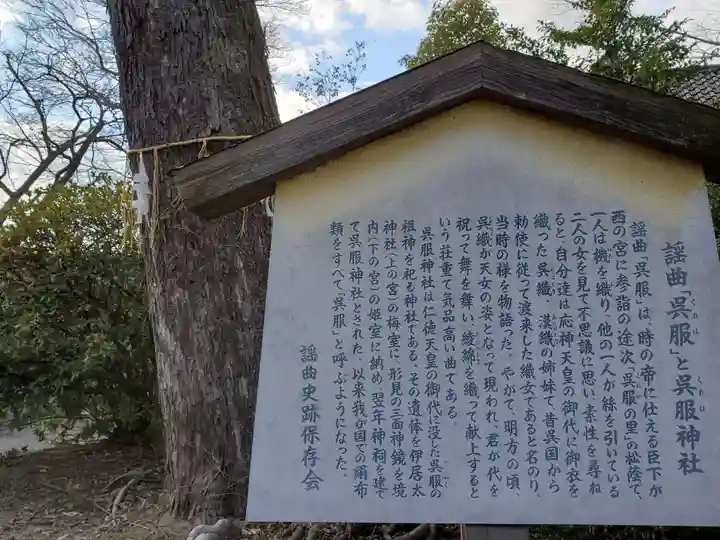 謡曲「呉服」と呉服神社
くれは
くれは
謡曲「呉服」は、時の帝に仕える臣下が
西の宮に参詣の途次「呉服の里」の松蔭で、
一人は機を織り、他の一人が絲を引いている
二人の女を見て不思議に思い、素性を尋ね
ると、自分達は応神天皇の御代に御衣を
織った呉織、漢織の姉妹で、昔呉国から
勅使に従って渡来した織女であると名のり、
当時の様を物語った。やがて、明方の頃、
呉織が天女の姿となって現われ、君が代を
祝って舞を舞い、綾錦を織って献上すると
いう荘重で気品高い曲である。
呉服神社は仁徳天皇の御代に没した呉服の
祖神を祀る神社である。その遺体を伊居太
神社(上の宮)の梅室に、形見の三面神鏡を境
内(下の宮)の姫室に納め、翌年神祠を建て
て呉服神社とされた。以来我が国での絹布
類をすべて「呉服」と呼ぶようになった。
謡曲史跡保存会